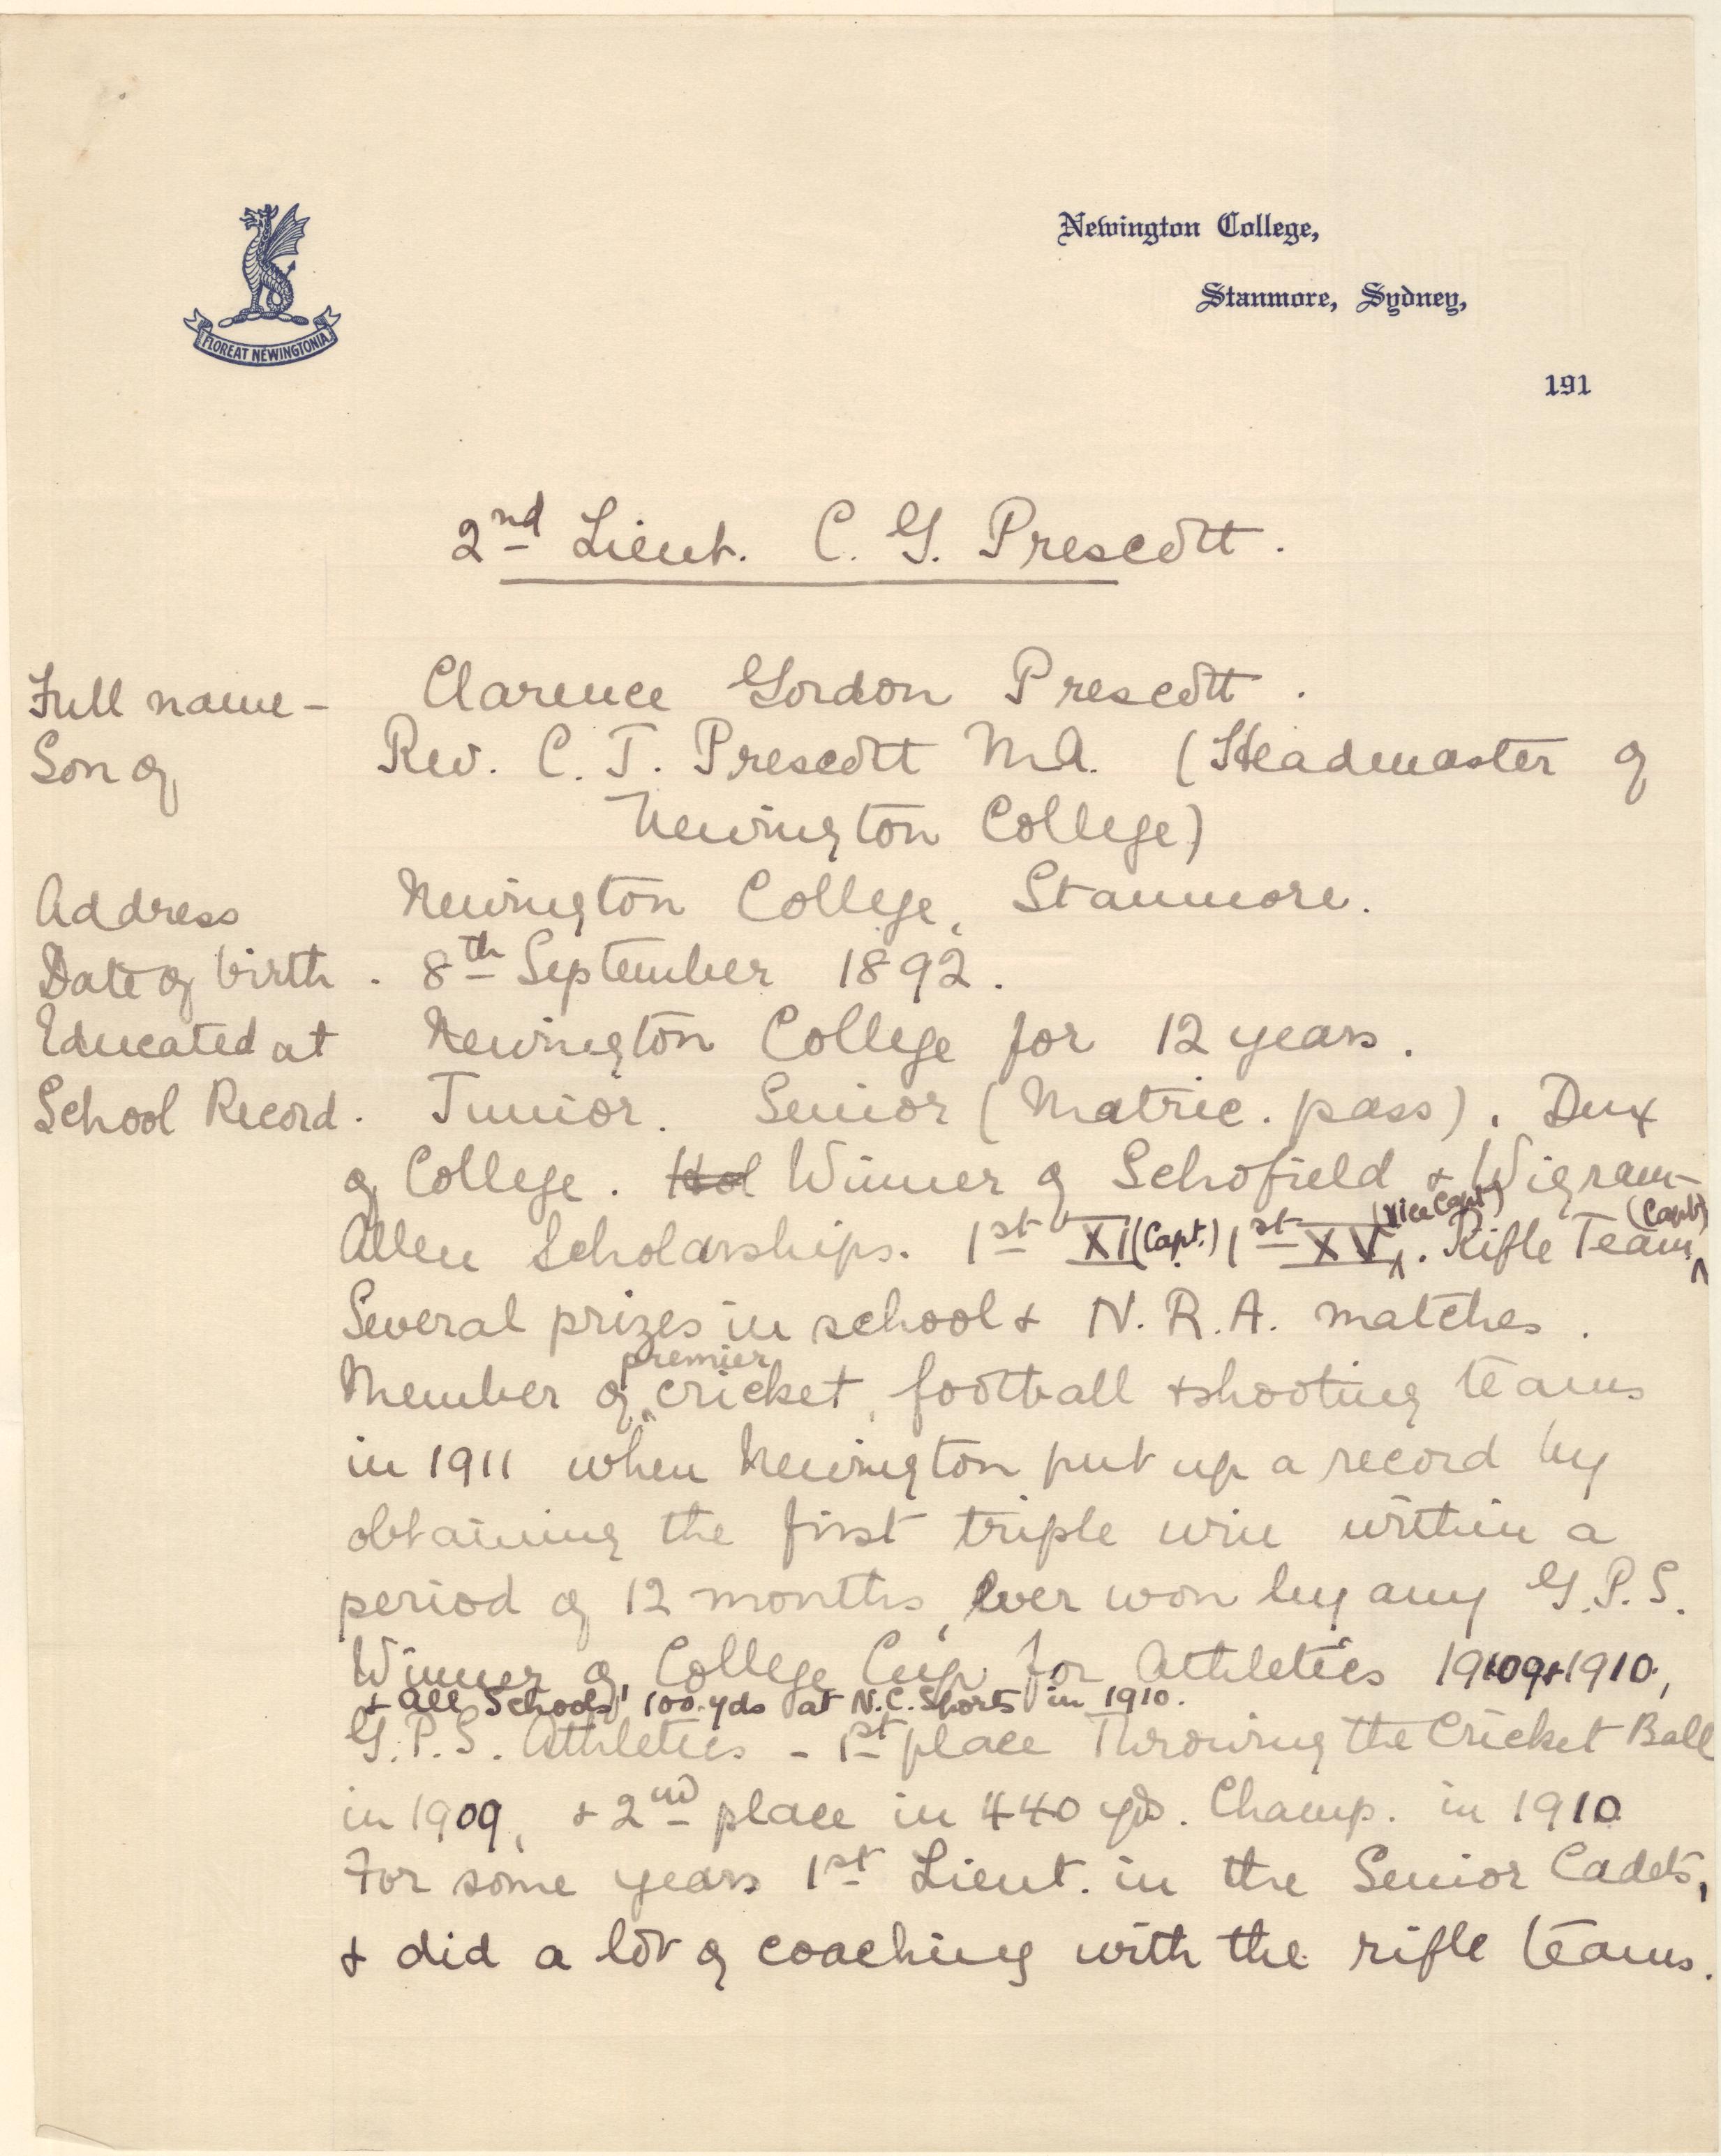 FLOREAT NEWINGTONIA
Newington College,
Stanmore, Sydney,
191
2nd Lieut. C. G. Prescott.
Full name - Clarence Gordon Prescott.
Son of Rev. C. J. Prescott M.A. (Headmaster of
Newington College)
Address Newington College, Stanmore.
Date of birth. 8th September 1892.
Educated at Newington College for 12 years.
School Record. Junior. Senior (Matric. pass). Dux
of College. Hol Winner of Schofield & Wigram-
Allen Scholarships. 1st XI (Capt.) 1st XV (Vice Capt). Rifle Team (Capt)
Several prizes in school & N.R.A. matches.
Member of premier cricket, football & shooting teams
in 1911 when Newington put up a record by
obtaining the first triple win within a
period of 12 months, ever won by any G.P.S.
Winner of College Cup for Athletics 1909 & 1910,
& All Schools' 100 yds at N.C. Sports in 1910.
G.P.S. Athletics - 1st place Throwing the Cricket Ball
in 1909, & 2nd place in 440 yds. Champ. in 1910
For some years 1st Lieut. in the Senior Cadets,
& did a lot of coaching with the rifle teams.